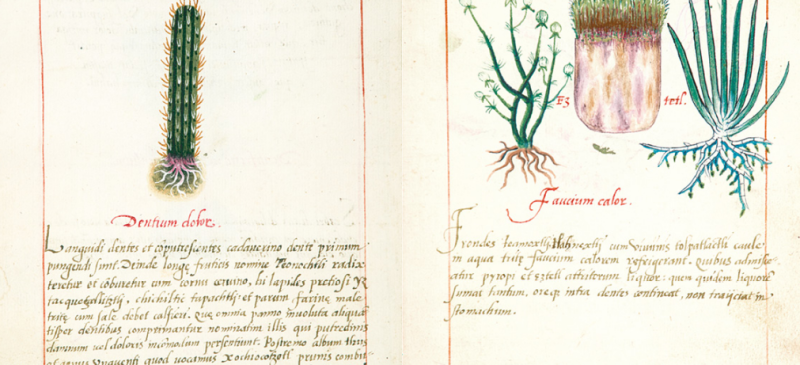 Dentium dolor.
Languidi dentes et cōputrescentes cadauerino dente primum
pungendi sunt. Deinde longe fruticis nomine Teonochtli radix
teretur et cōburetur cum cornu ceruino, hi lapides pretiosi
chichiltic tapachtli, et parum farine male
trite cum sale debet calfieri. Que omnia panno inuoluta aliqua
tisper dentibus comprimantur nominatim illis qui putredinis
damnum uel doloris incōmodum persentiunt. Postremo album thus
et unguenti quod vocamus Xochiocotzotl prunis combu
Ez tetl.
Faucium calor.
Frondes cum caule
in aqua trite faucium calorem refrigerant, quibus
pyropi et eztetl attritorum liquor: quem quidem liquore
sumat tantum, ore intra dentes contineat, non traijciat in
stomachum.